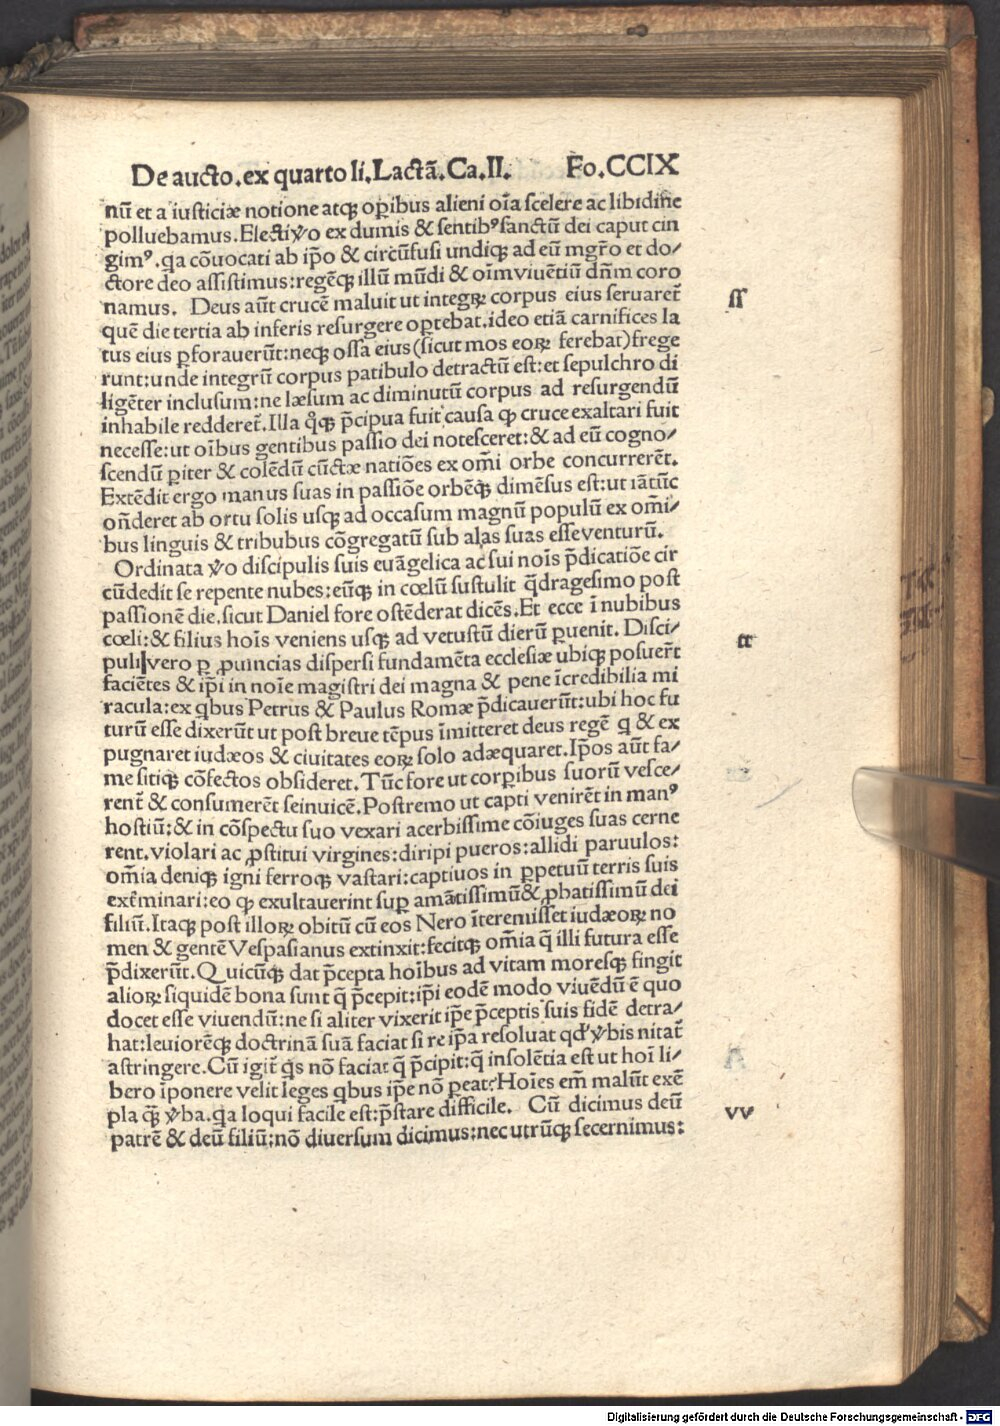 De aucto.ex quarto li.Lactã.Ca.II. Fo.CCIX
nũ et a iusticiæ notione atqꝫ oꝑibus alieni oĩa scelere ac libidine
polluebamus.Electi ꝟo ex dumis & sentibꝰ sanctũ dei caput cin
gimꝰ.qa cõuocati ab ip̃o & circũfusi undiqꝫ ad eũ mgr̃o et do/
ctore deo assistimus:regẽqꝫ illũ mũdi & oĩm viuẽtiũ dñm coro
namus. Deus aũt crucẽ maluit ut integꝝ corpus eius seruaret̃
quẽ die tertia ab inferis resurgere oꝑtebat.ideo etiã carnifices la
tus eius ꝑforauerũt:neqꝫ ossa eius(sicut mos eoꝝ ferebat)frege
runt:unde integrũ corpus patibulo detractũ est:et sepulchro di
ligẽter inclusum:ne læsum ac diminutũ corpus ad resurgendũ
inhabile redderet̃.Illa q̊qꝫ p̃cipua fuit causa ꝙ cruce exaltari fuit
necesse:ut oĩbus gentibus passio dei notesceret:& ad eũ cogno/
scendũ ꝑiter & colẽdũ cũctæ natiões ex om̃i orbe concurrerẽt.
Extẽdit ergo manus suas in passiõe orbẽqꝫ dimẽsus est:ut iãtũc
oñderet ab ortu solis usqꝫ ad occasum magnũ populũ ex om̃i/
bus linguis & tribubus cõgregatũ sub alas suas esse venturũ.
Ordinata ꝟo discipulis suis euãgelica ac sui noĩs p̃dicatiõe cir
cũdedit se repente nubes:eũqꝫ in cœlũ sustulit q̃dragesimo post
passionẽ die,sicut Daniel fore ostẽderat dicẽs.Et ecce ĩ nubibus
cœli:& filius hoĩs veniens usqꝫ ad vetustũ dierũ ꝑuenit. Disci/
puli vero ꝑ ꝓuincias dispersi fundamẽta ecclesiæ ubiqꝫ posuer̃t
faciẽtes & ip̃i in noĩe magistri dei magna & pene ĩcredibilia mi
racula:ex qbus Petrus & Paulus Romæ p̃dicauerũt:ubi hoc fu
turũ esse dixerũt ut post breue tẽpus ĩmitteret deus regẽ q & ex
pugnaret iudæos & ciuitates eoꝝ solo adæquaret.Ip̃os aũt fa/
me sitiqꝫ cõfectos obsideret.Tũc fore ut corꝑibus suorũ vesce/
rent̃ & consumerẽt seinuicẽ.Postremo ut capti venirẽt in manꝰ
hostiũ:& in cõspectu suo vexari acerbissime cõiuges suas cerne
rent.violari ac ꝓstitui virgines:diripi pueros:allidi paruulos:
om̃ia deniqꝫ igni ferroqꝫ vastari:captiuos in ꝑpetuũ terris suis
extẽminari:eo ꝙ exultauerint suꝑ amãtissimũ & ꝓbatissimũ dei
filiũ.Itaqꝫ post illoꝝ obitũ cũ eos Nero ĩteremisset iudæoꝝ no
men & gentẽ Vespasianus extinxit:fecitqꝫ om̃ia q̃ illi futura esse
p̃dixerũt.Quicũqꝫ dat p̃cepta hoĩbus ad vitam moresqꝫ fingit
alioꝝ siquidẽ bona sunt q̃ p̃cepit:ip̃i eodẽ modo viuẽdũ ẽ quo
docet esse viuendũ:ne si aliter vixerit ip̃e p̃ceptis suis fidẽ detra/
hat:leuiorẽqꝫ doctrinã suã faciat si re ip̃a resoluat qd' ꝟbis nitat̃
astringere.Cũ igit̃ q̃s nõ faciat q̃ p̃cipit:q̃ insolẽtia est ut hoĩ li/
bero ĩponere velit leges qbus ip̃e nõ ꝑeat?Hoĩes em̃ malũt exẽ
pla q̃ꝫ ꝟba.qa loqui facile est:p̃stare difficile. Cũ dicimus deũ
patrẽ & deũ filiũ:nõ diuersum dicimus:nec utrũqꝫ secernimus:
ss
tt
vv
Digitalisierung gefördert durch die Deutsche Forschungsgemeinschaft - DFG